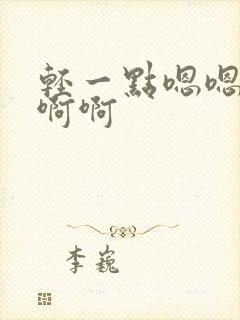 輕一點嗯嗯
啊啊
李巍